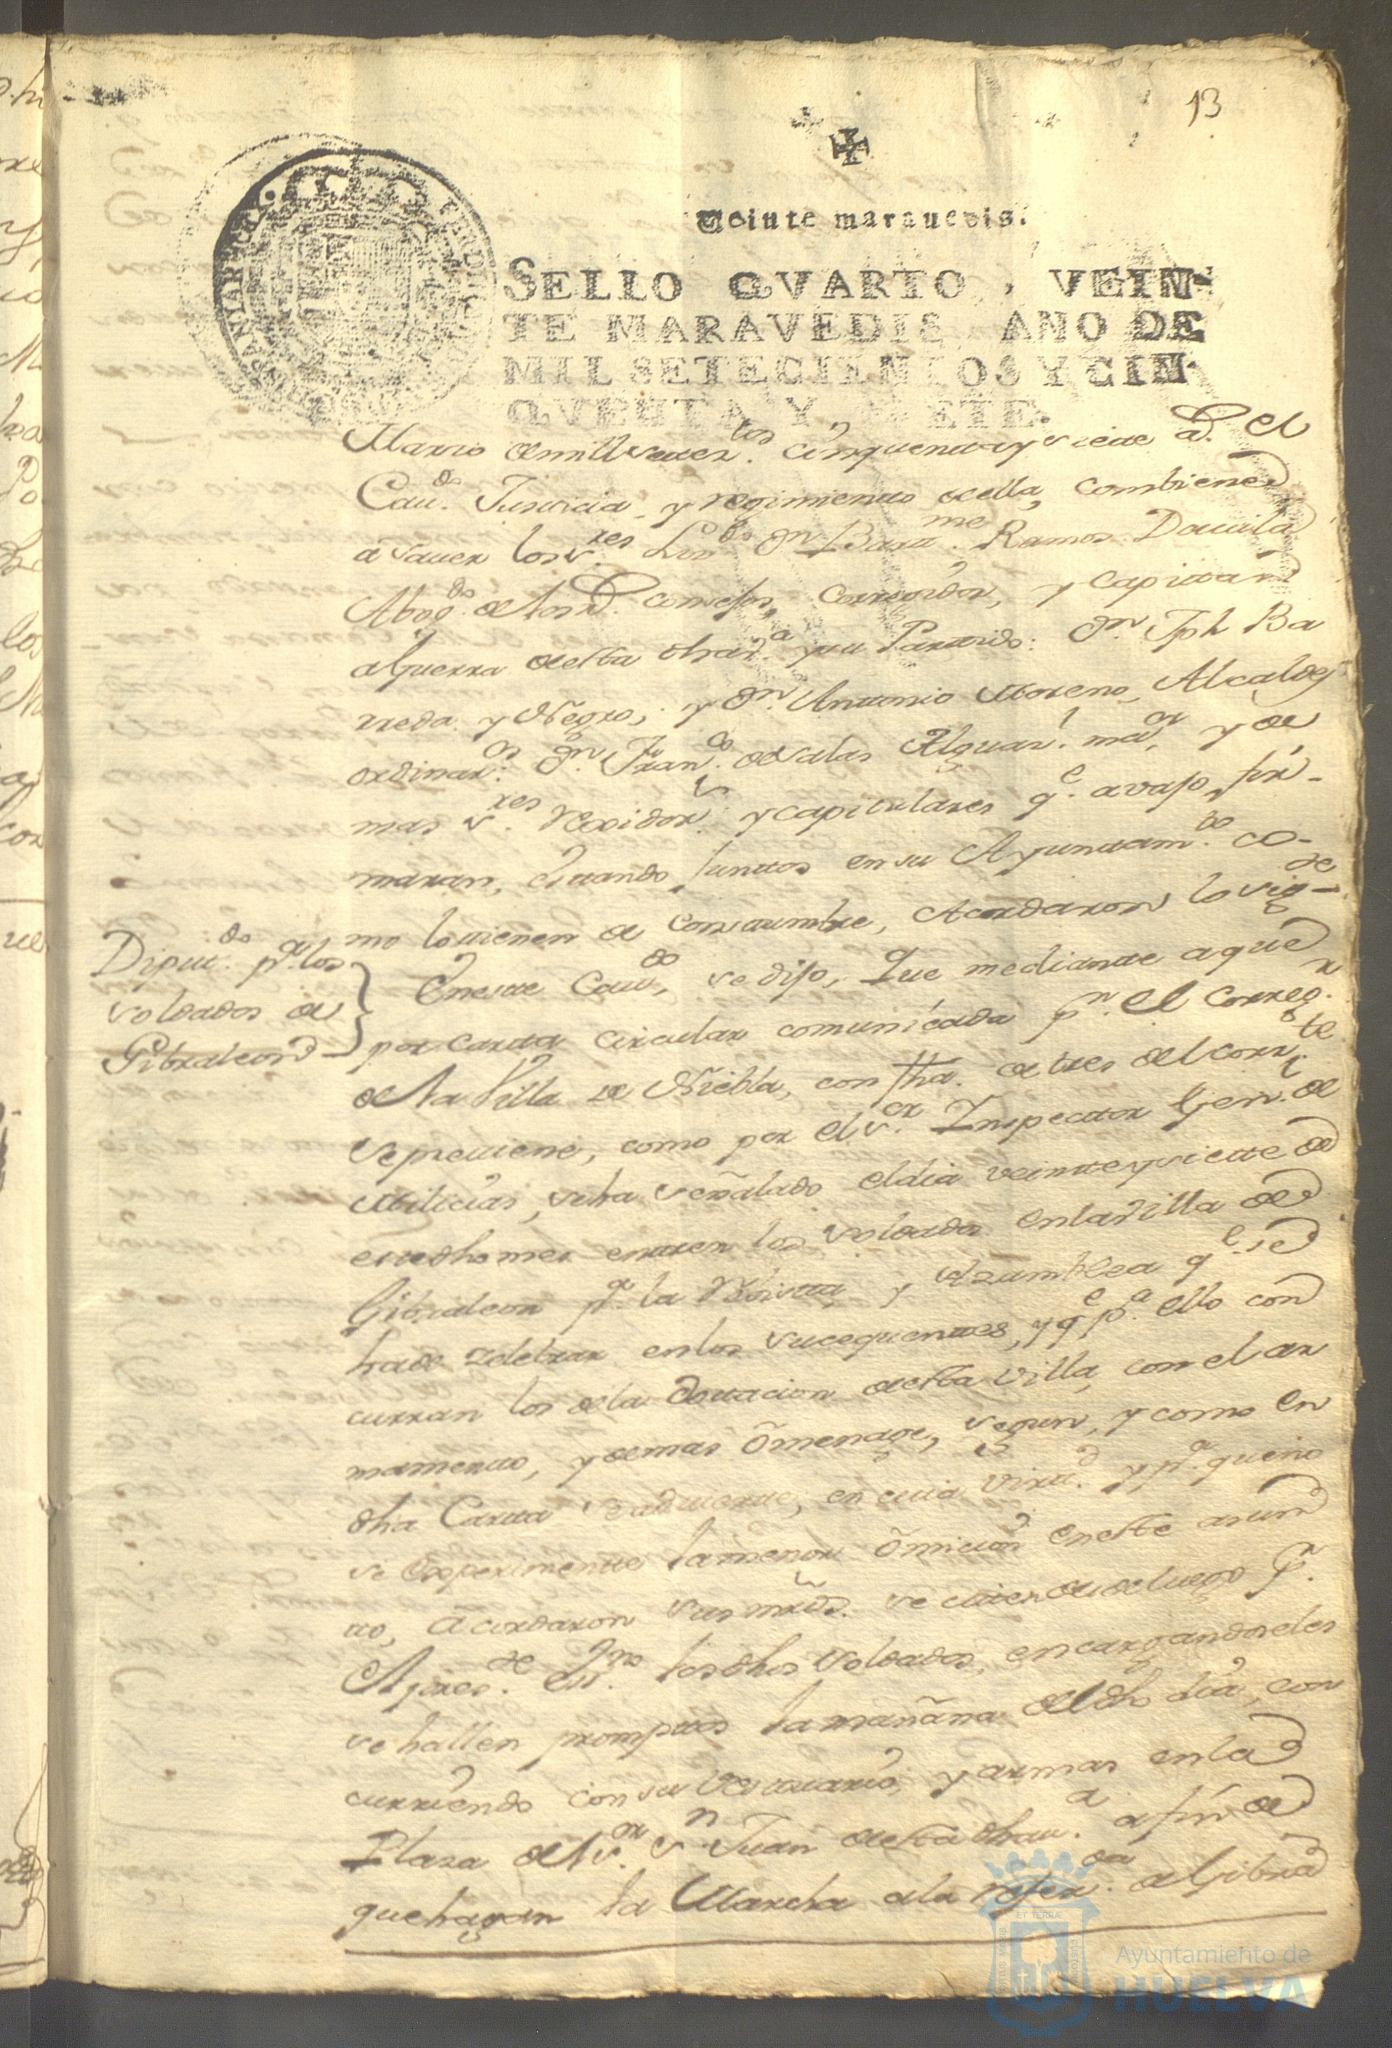 13
Veinte marauedis.
SELLO QVARTO, VEIN-
TE MARAVEDIS, AÑO DE
MIL SETECIENTOS Y CIN-
QVENTA Y SIETE.
Marzo de mill setez.tos cinquenta y siete a.s el
Cau.do Justicia y regimiento de ella, combiene
a sauer los s.res Lizdo Dn Bartme Ramos Dauila
Abogdo de los Rs. consejos, Corregidor, y capitan
a Guerra desta dha v.a y su Partido: Dn Jph Ba
rreda y Negro, y Dn Antonio Moreno, Alcaldes
ordinarios: Dn Franco de Salas Alguarl. mayor y de
mas s.res rexidors y capitulares qe. avajo fir-
maran, estando juntos en su Ayuntamto co-
mo lo tienen de constumbre, Acordaron lo sigte
Diputdo pa los
soldados de
Gibraleon
Eneste Caudo, se dijo, que mediante a que
por carta circular comunicada pr. el Corregr
de la Villa de Niebla, con fha. de tres del corrte
se preuiene, como por el s.or Inspector Genl. de
Milicias, se ha señalado el dia veinte y siete de
este dho mes entren los soldados en la villa de
Gibraleon pa. la Rebista y Azamblea qe. se
ha de zelebrar en los sucequentes, y qe pa ello con
curran los de la dotacion desta villa, con el ar
mamento, y demas omenage, segun, y como en
dha Carta se aduierte, en cuia virtd. y pa. que no
se experimente la menor omicion en este asun
to, acordaron sus mrds. se citen desde luego pr.
Ajte. Esno. los dhos soldados, encargandoseles
se hallen promptos la mañana del dho dia, con
curriendo con su vestuario, y armas en la
Plaza del s.or Sn Juan desta dha v.a a fin de
que hagan la Marcha a la referda de Gibra
Ayuntamiento de
HUELVA